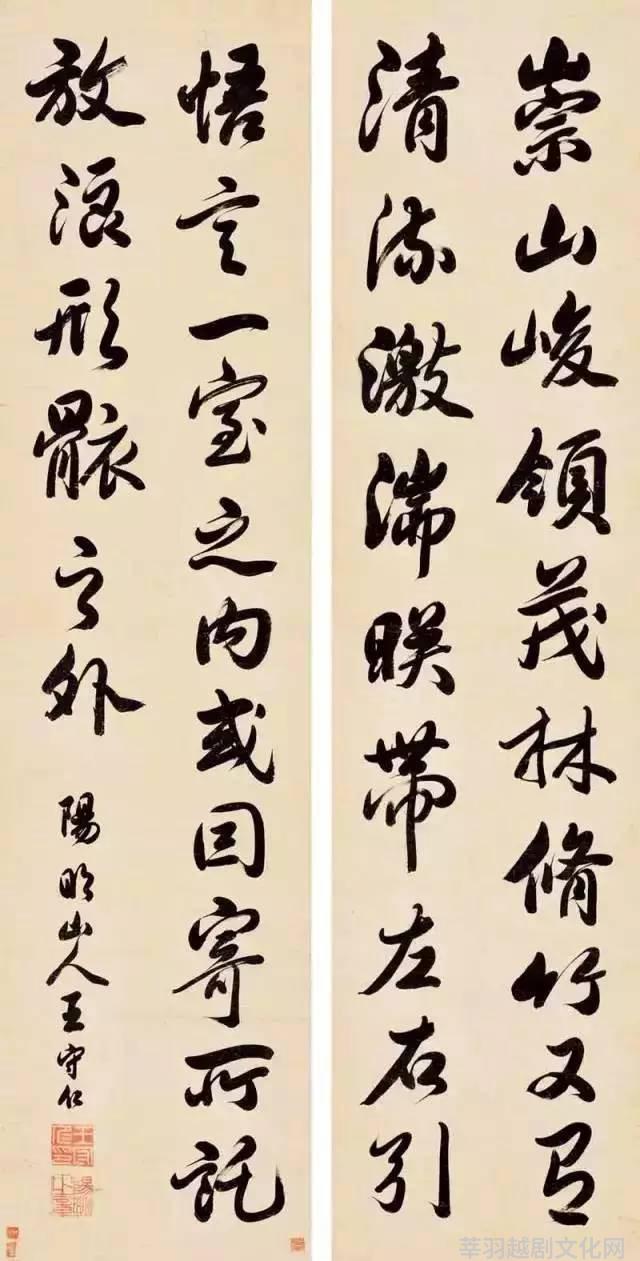 崇山峻領茂林脩竹又有
清流激湍暎帶左右引
悟言一室之内或因寄所託
放浪形骸之外
陽明山人王守仁
莘羽越剧文化网